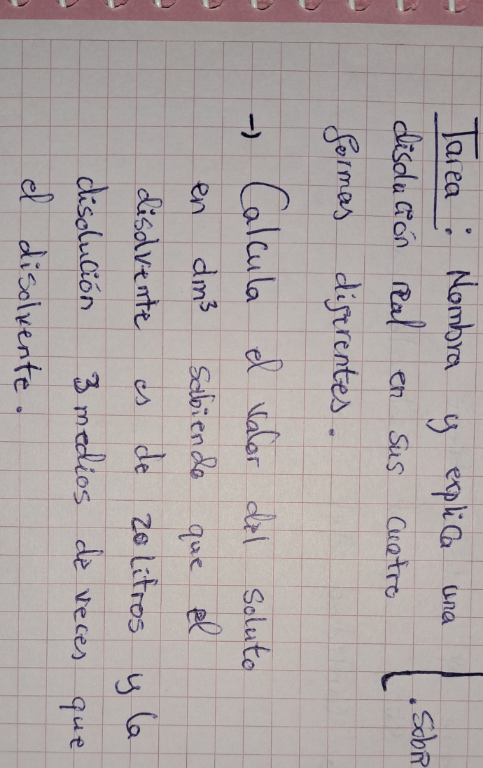 Tarea: Nombra y explica una
disolución real en sus cuatro
formas diferentes.
→ Calcula el valor del soluto
en dm³ sabiendo que el
disolvente es de 20 litros y la
disolución 3 medios de veces que
el disolvente.